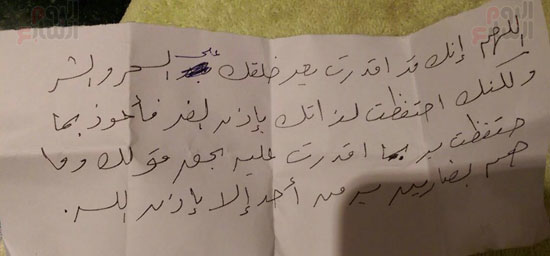 اللهم إنك قد اقدرت بعد خلقك على السحر والشر
ولكنك احتفظت لذاتك بإذن الضر فأعوذ بما
حتفظت به بما اقدرت عليه بحق قولك وما
هم بضارين به من أحد إلا بإذن الله.